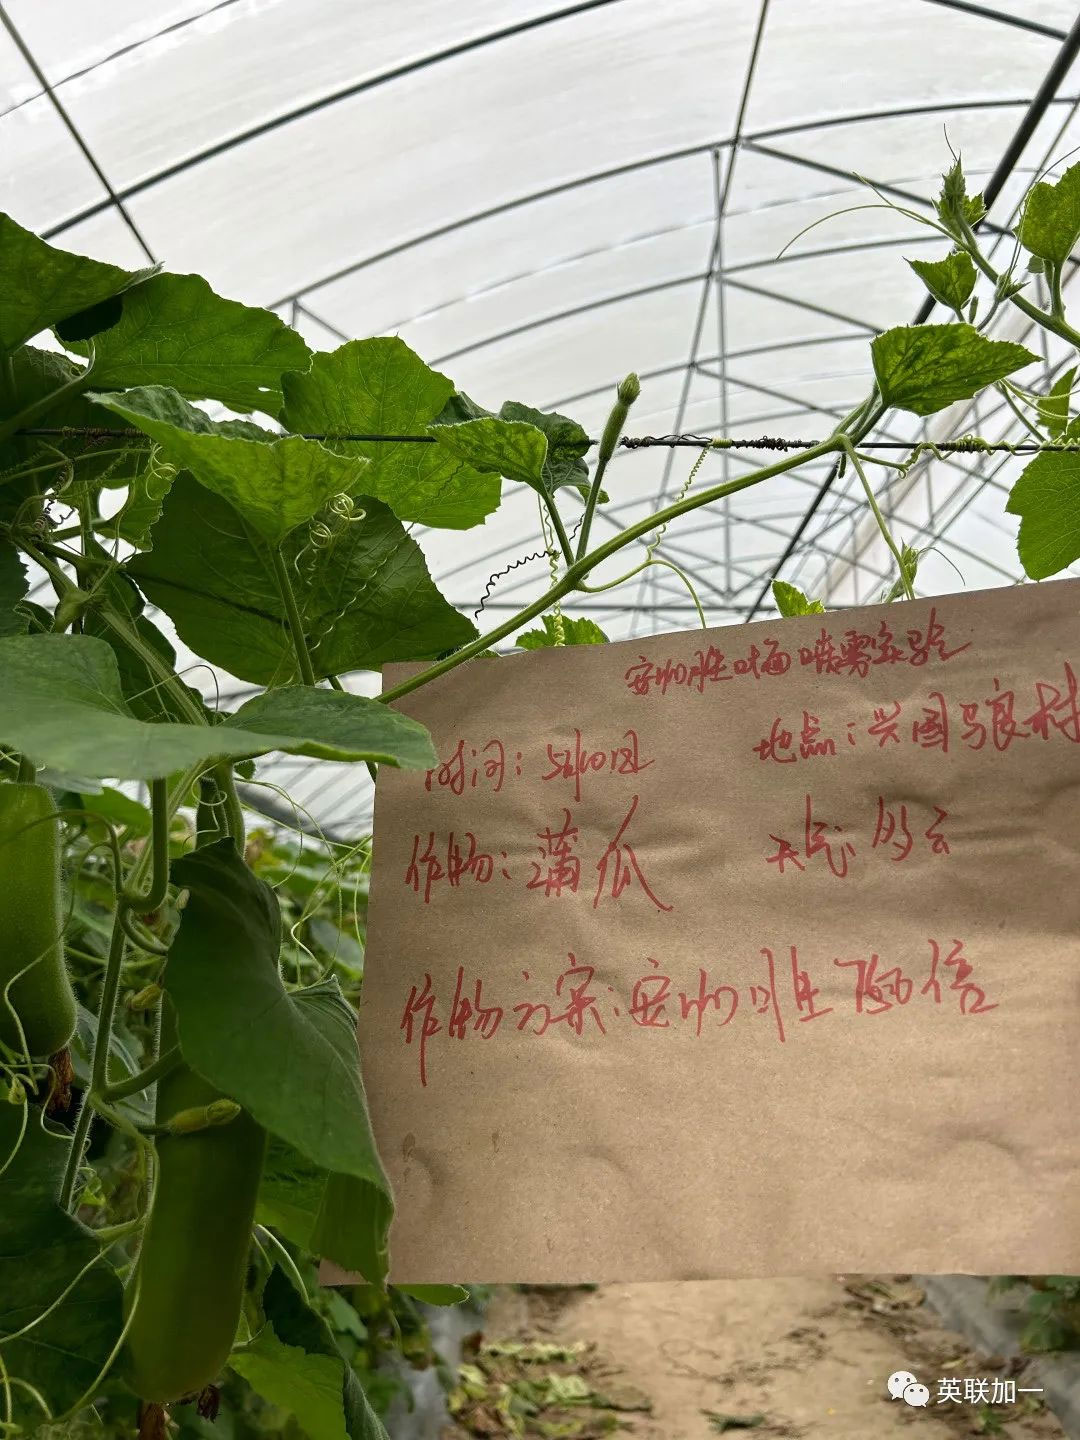 安咖胜叶面喷雾实验
时间：5月10日 地点：兴国 村
作物：蒲瓜 天气：多云
作物方案：安咖胜 倍
英联加一